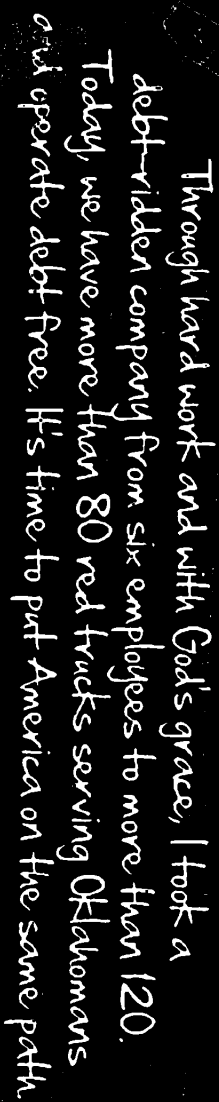 Through hard work and with God's grace, I took a
debt-ridden company from six employees to more than 120.
Today, we have more than 80 red trucks serving Oklahomans
and operate debt free. It's time to put America on the same path.